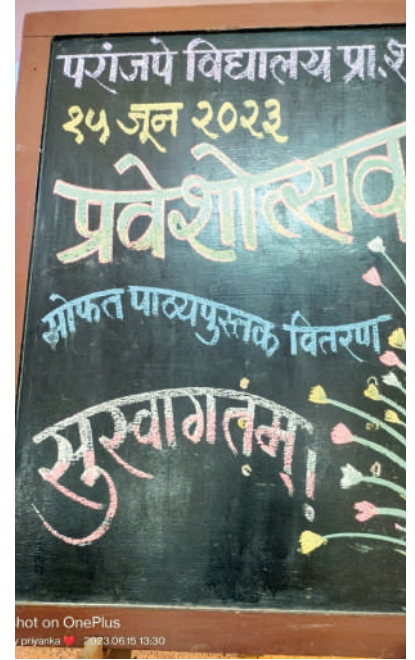 परांजपे विद्यालय प्रा.श
१५ जून २०२३
प्रवेशोत्सव
मोफत पाठ्यपुस्तक वितरण
सुस्वागतंम्!
Shot on OnePlus
y priyanka ❤ 2023.06.15 13:30